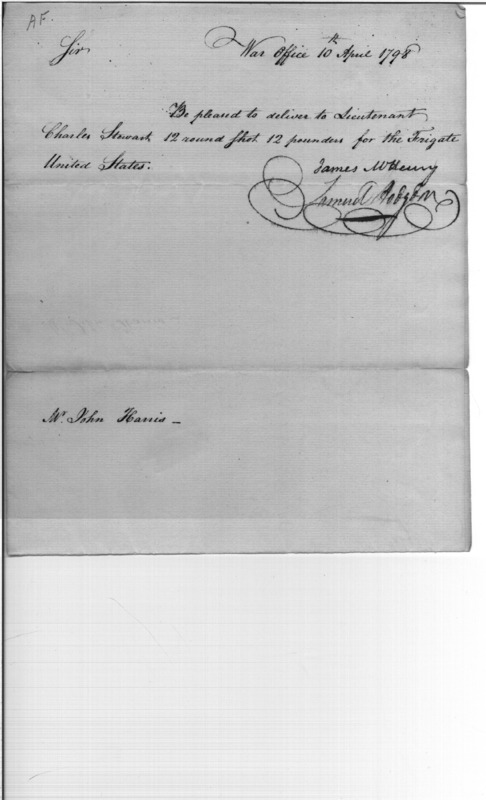 A F.
Sir
War Office 10th April 1798
Be pleased to deliver to Lieutenant
Charles Stewart 12 round shot 12 pounders for the Frigate
United States.
James McHenry
Samuel Hodgdon
Mr. John Harris –